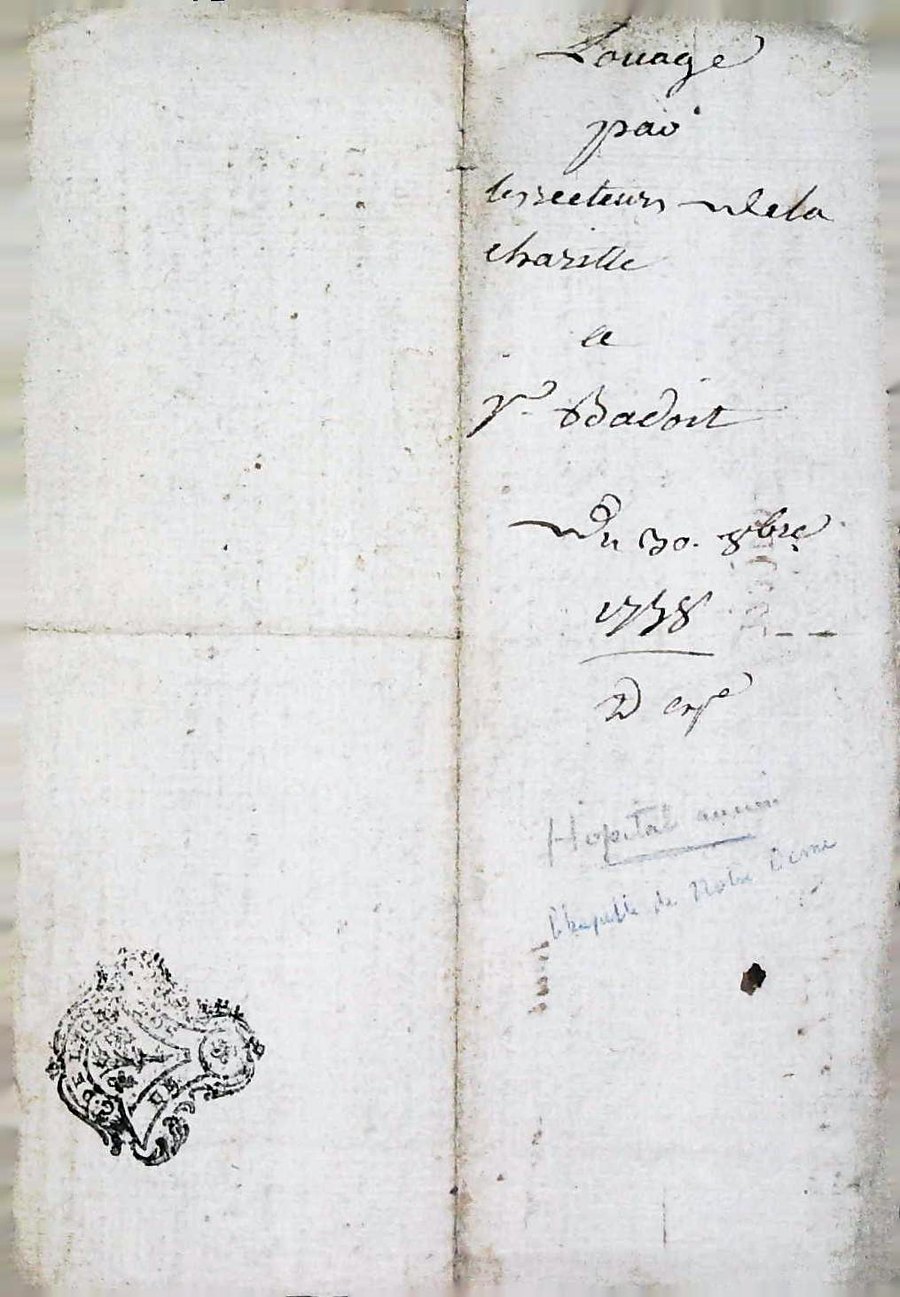 Louage
par
les recteurs de la
charitte
a
Sr. Badoit
Du 30. 8bre
1738
Hopital ancien
Chapelle de Notre Dame